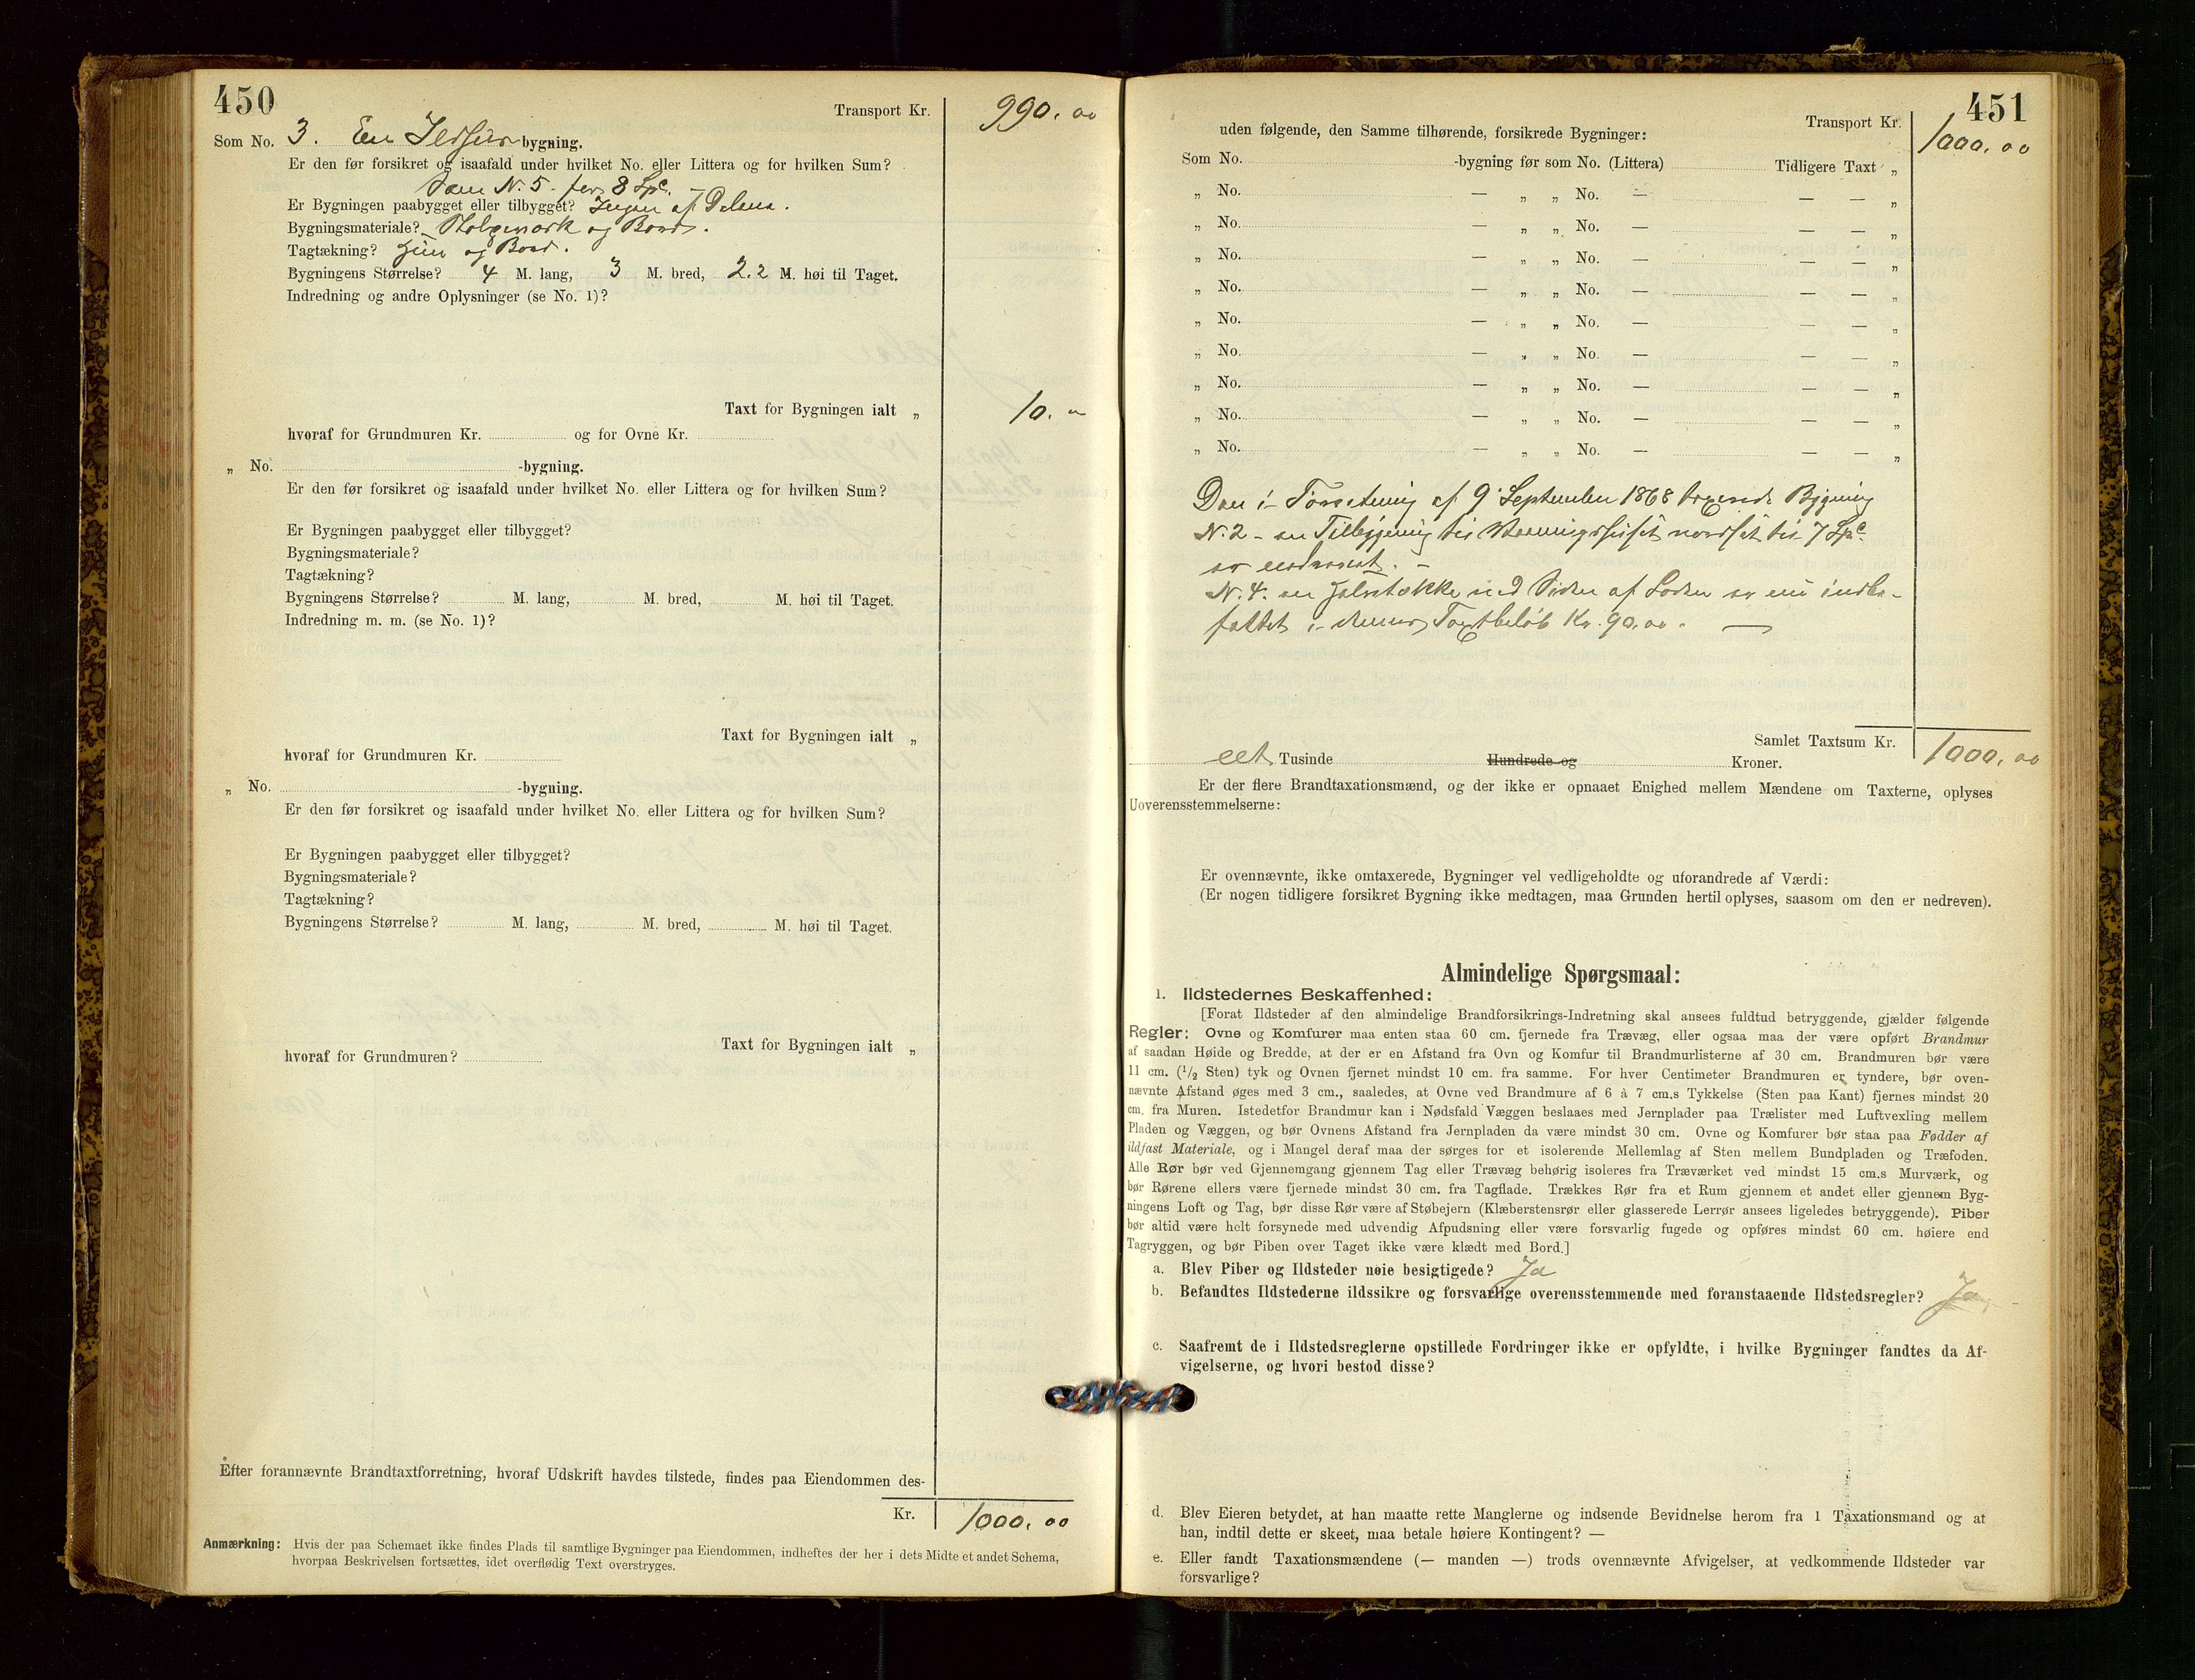 450
Transport Kr. 990. 00
Som No. 3. En Ildhus-bygning.
Er den før forsikret og isaafald under hvilket No. eller Littera og for hvilken Sum?
Som N. 5 - for 8 Spc.
Er Bygningen paabygget eller tilbygget? Ingen af Delene.
Bygningsmateriale? Stolpeværk og Bord.
Tagtækning? og Bord.
Bygningens Størrelse? 4 M. lang, 3 M. bred, 2.2 M. høi til Taget.
Indredning og andre Oplysninger (se No. 1)?
Taxt for Bygningen ialt „ 10. "
hvoraf for Grundmuren Kr. og for Ovne Kr.
„ No. -bygning.
Er den før forsikret og isaafald under hvilket No. eller Littera og for hvilken Sum?
Er Bygningen paabygget eller tilbygget?
Bygningsmateriale?
Tagtækning?
Bygningens Størrelse? M. lang, M. bred, M. høi til Taget.
Indredning m. m. (se No. 1)?
Taxt for Bygningen ialt „
hvoraf for Grundmuren Kr.
„ No. -bygning.
Er den før forsikret og isaafald under hvilket No. eller Littera og for hvilken Sum?
Er Bygningen paabygget eller tilbygget?
Bygningsmateriale?
Tagtækning?
Bygningens Størrelse? M. lang, M. bred, M. høi til Taget.
Taxt for Bygningen ialt „
hvoraf for Grundmuren?
Efter forannævnte Brandtaxtforretning, hvoraf Udskrift havdes tilstede, findes paa Eiendommen des-
Kr. 1000. 00
Anmærkning: Hvis der paa Schemaet ikke findes Plads til samtlige Bygninger paa Eiendommen, indheftes der her i dets Midte et andet Schema,
hvorpaa Beskrivelsen fortsættes, idet overflødig Text overstryges.
451
Transport Kr. 1000. 00
uden følgende, den Samme tilhørende, forsikrede Bygninger:
Som No. -bygning før som No. (Littera) Tidligere Taxt „
„ No. — „ „ No. — — — „
„ No. — „ „ No. — — — „
„ No. — „ „ No. — — — „
„ No. — „ „ No. — — — „
„ No. — „ „ No. — — — „
„ No. — „ „ No. — — — „
„ No. — „ „ No. — — — „
„ No. — „ „ No. — — — „
„ No. — „ „ No. — — — „
Den i Forretning af 9 September 1868 Bygning
N. 2 - en Tilbygning til Vaaningshuset til 7 Spc.
er
N. 4. en ved Siden af Loden er nu indbe-
fattet i Taxtbeløb Kr. 90.00. —
Samlet Taxtsum Kr. 1000. 00
eet Tusinde Hundrede og Kroner.
Er der flere Brandtaxationsmænd, og der ikke er opnaaet Enighed mellem Mændene om Taxterne, oplyses
Uoverensstemmelserne:
Er ovennævnte, ikke omtaxerede, Bygninger vel vedligeholdte og uforandrede af Værdi:
(Er nogen tidligere forsikret Bygning ikke medtagen, maa Grunden hertil oplyses, saasom om den er nedreven).
Almindelige Spørgsmaal:
1. Ildstedernes Beskaffenhed:
[Forat Ildsteder af den almindelige Brandforsikrings-Indretning skal ansees fuldtud betryggende, gjælder følgende
Regler: Ovne og Komfurer maa enten staa 60 cm. fjernede fra Trævæg, eller ogsaa maa der være opført Brandmur
af saadan Høide og Bredde, at der er en Afstand fra Ovn og Komfur til Brandmurlisterne af 30 cm. Brandmuren bør være
11 cm. (1/2 Sten) tyk og Ovnen fjernet mindst 10 cm. fra samme. For hver Centimeter Brandmuren er tyndere, bør oven-
nævnte Afstand øges med 3 cm., saaledes, at Ovne ved Brandmure af 6 à 7 cm.s Tykkelse (Sten paa Kant) fjernes mindst 20
cm. fra Muren. Istedetfor Brandmur kan i Nødsfald Væggen beslaaes med Jernplader paa Trælister med Luftvexling mellem
Pladen og Væggen, og bør Ovnens Afstand fra Jernpladen da være mindst 30 cm. Ovne og Komfurer bør staa paa Fødder af
ildfast Materiale, og i Mangel deraf maa der sørges for et isolerende Mellemlag af Sten mellem Bundpladen og Træfoden.
Alle Rør bør ved Gjennemgang gjennem Tag eller Trævæg behørig isoleres fra Træværket ved mindst 15 cm.s Murværk, og
bør Rørene ellers være fjernede mindst 30 cm. fra Tagflade. Trækkes Rør fra et Rum gjennem et andet eller gjennem Byg-
ningens Loft og Tag, bør disse Rør være af Støbejern (Klæberstensrør eller glasserede Lerrør ansees ligeledes betryggende). Piber
bør altid være helt forsynede med udvendig Afpudsning eller være forsvarlig fugede og opføres mindst 60 cm. høiere end
Tagryggen, og bør Piben over Taget ikke være klædt med Bord.]
a. Blev Piber og Ildsteder nøie besigtigede? Ja
b. Befandtes Ildstederne ildssikre og forsvarlige overensstemmende med foranstaaende Ildstedsregler? Ja
c. Saafremt de i Ildstedsreglerne opstillede Fordringer ikke er opfyldte, i hvilke Bygninger fandtes da Af-
vigelserne, og hvori bestod disse?
d. Blev Eieren betydet, at han maatte rette Manglerne og indsende Bevidnelse herom fra 1 Taxationsmand og at
han, indtil dette er skeet, maa betale høiere Kontingent? —
e. Eller fandt Taxationsmændene (— manden —) trods ovennævnte Afvigelser, at vedkommende Ildsteder var
forsvarlige?